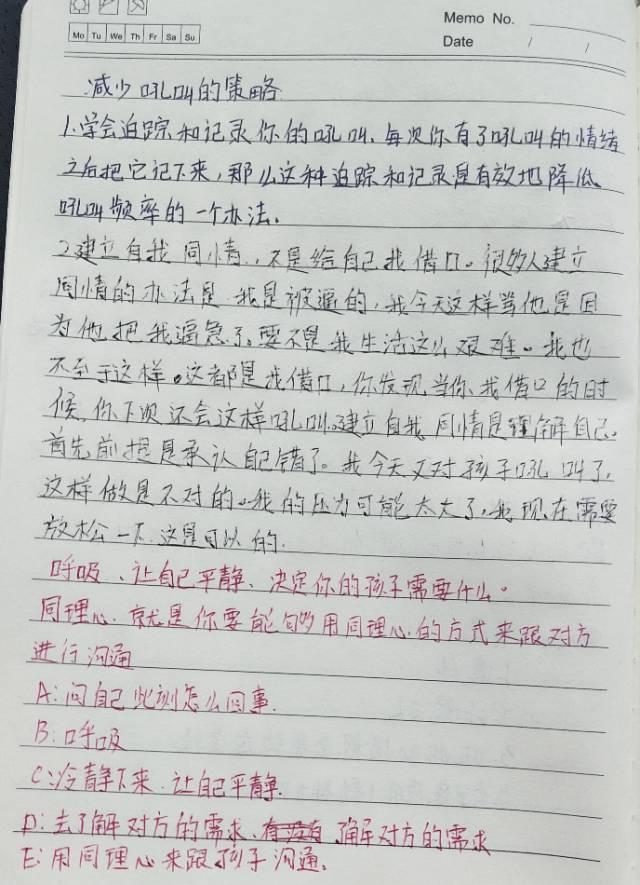 Memo No.
Mo Tu We Th Fr Sa Su
Date / /
减少吼叫的策略
1.学会追踪和记录你的吼叫、每次你有了吼叫的情绪
之后把它记下来，那么这种追踪和记录是有效地降低
吼叫频率的一个办法。
2.建立自我同情，不是给自己找借口。很多人建立
同情的办法是 我是被逼的，我今天这样骂他是因
为他把我逼急了。要不是我生活这么艰难。我也
不至于这样。这都是找借口，你发现当你找借口的时
候，你下次还会这样吼叫。建立自我同情是理解自己。
首先前提是承认自己错了。我今天又对孩子吼叫了，
这样做是不对的。我的压力可能太大了，我现在需要
放松一下.这是可以的.
呼吸、让自己平静、决定你的孩子需要什么。
同理心.就是你要能够用同理心的方式来跟对方
进行沟通
A:问自己此刻怎么回事.
B:呼吸
C:冷静下来.让自己平静.
D:去了解对方的需求、有没有了解对方的需求
E:用同理心来跟孩子沟通。